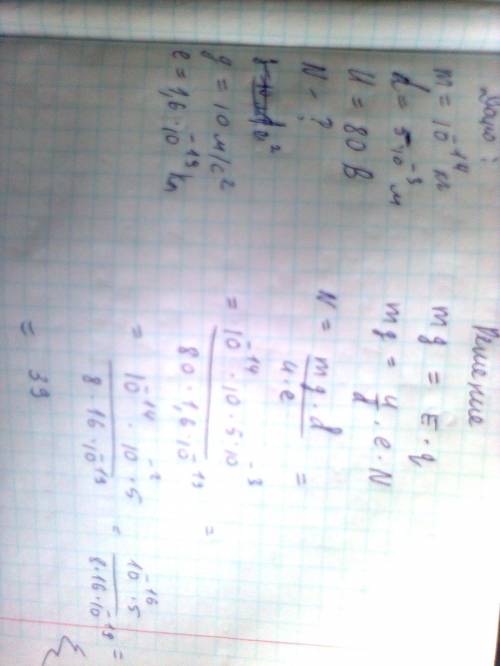 Дано:
m = 10⁻¹⁴ кг
d = 5·10⁻³ м
U = 80 В
N - ?
g = 10 м/с²
e = 1,6·10⁻¹⁹ Кл
Решение
mg = E·q
mg = U/d · e·N
N = mg·d / U·e =
= 10⁻¹⁴·10·5·10⁻³ / 80·1,6·10⁻¹⁹ =
= 10⁻¹⁴·10⁻²·5 / 8·16·10⁻¹⁹ = 10⁻¹⁶·5 / 8·16·10⁻¹⁹ =
= 39